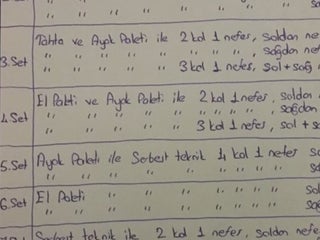 " " " " " "
3.Set Tahta ve Ayak Paleti ile 2 kol 1 nefes, soldan ne
" " " " " " " " " sağdan ne
" " " " " 3 kol 1 nefes, sol + sağ
4.Set El Paleti ve Ayak Paleti ile 2 kol 1 nefes, soldan
" " " " " " " " " sağdan
" " " " " 3 kol 1 nefes, sol + s
5.Set Ayak Paleti ile Serbest teknik 4 kol 1 nefes so
" " " " " " " sa
6.Set El Paleti " " " " " " so
" " " " " " " " sa
Serbest teknik ile 2 kol 1 nefes, soldan nefe